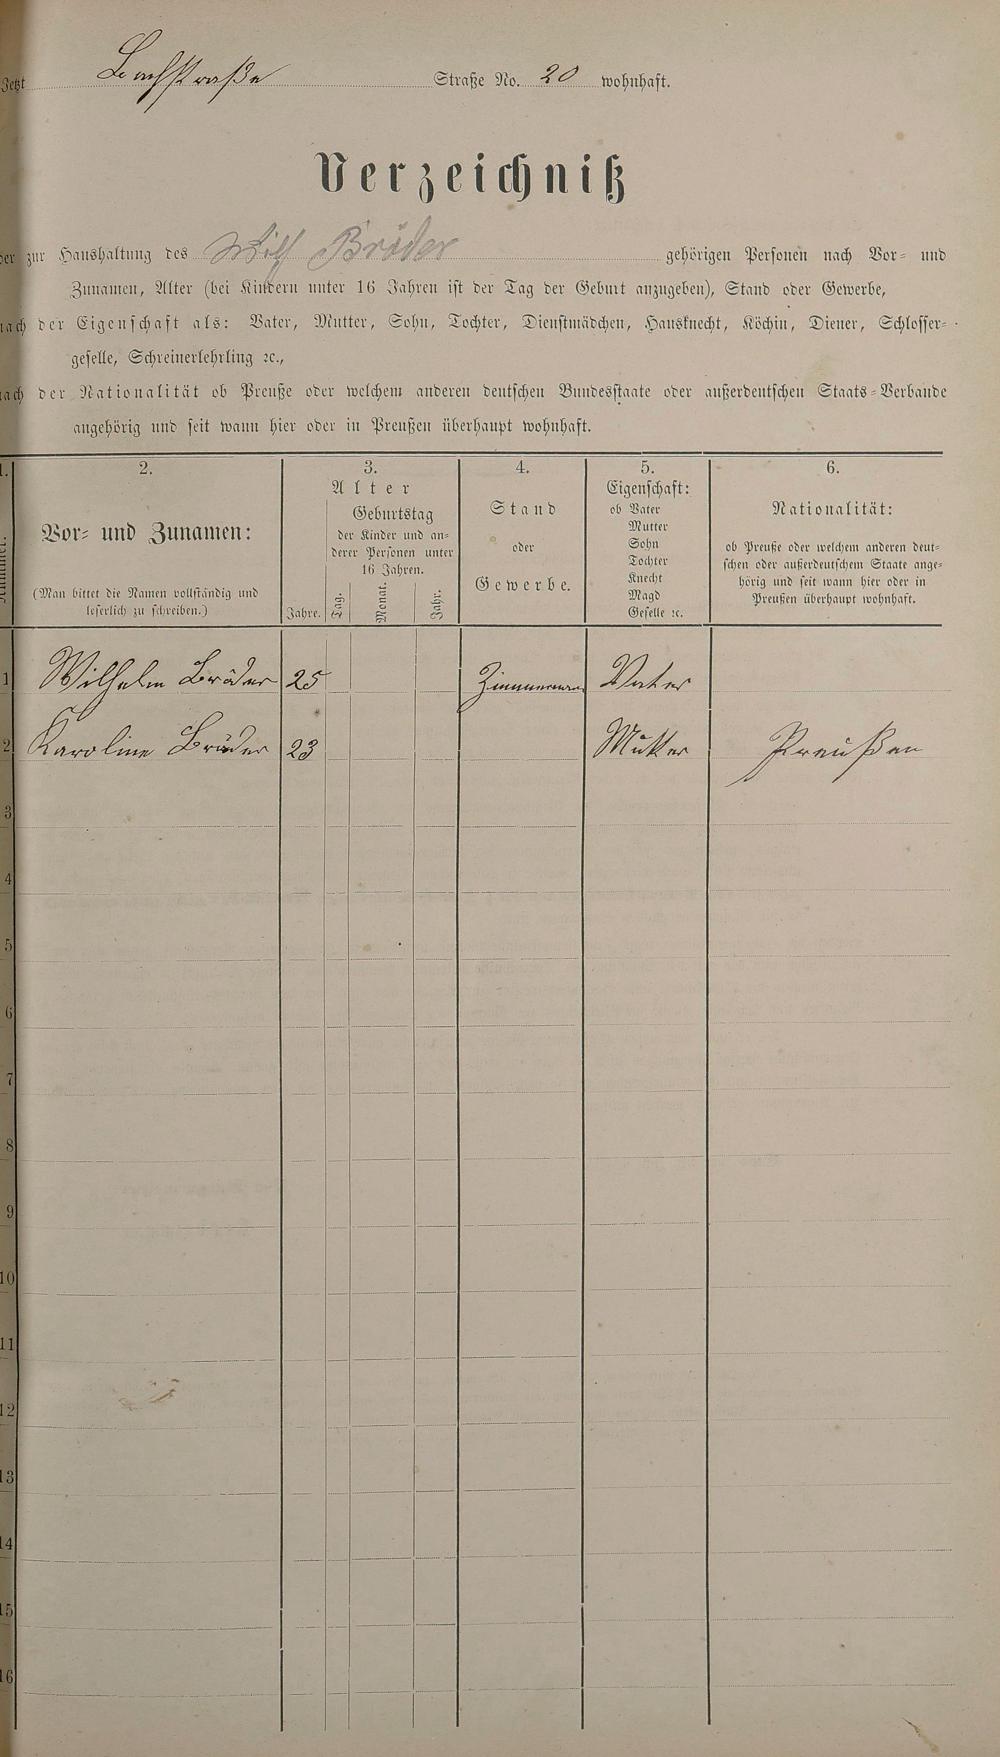 Jetzt Bachstraße Straße No. 20 wohnhaft.
Verzeichniß
der zur Haushaltung des Wilh Bröder gehörigen Personen nach Vor- und
Zunamen, Alter (bei Kindern unter 16 Jahren ist der Tag der Geburt anzugeben), Stand oder Gewerbe,
nach der Eigenschaft als: Vater, Mutter, Sohn, Tochter, Dienstmädchen, Hausknecht, Köchin, Diener, Schlosser-
geselle, Schreinerlehrling ꝛc.,
nach der Nationalität ob Preuße oder welchem anderen deutschen Bundesstaate oder außerdeutschen Staats-Verbande
angehörig und seit wann hier oder in Preußen überhaupt wohnhaft.
1.
Nummer.
2.
Vor- und Zunamen:
(Man bittet die Namen vollständig und
leserlich zu schreiben.)
3.
Alter
Jahre.
Geburtstag
der Kinder und an-
derer Personen unter
16 Jahren.
Tag.
Monat.
Jahr.
4.
Stand
oder
Gewerbe.
5.
Eigenschaft:
ob Vater
Mutter
Sohn
Tochter
Knecht
Magd
Geselle ꝛc.
6.
Nationalität:
ob Preuße oder welchem anderen deut-
schen oder außerdeutschem Staate ange-
hörig und seit wann hier oder in
Preußen überhaupt wohnhaft.
1 Wilhelm Bröder 25 Zimmermann Vater
2 Karoline Bröder 23 Mutter Preußen
3
4
5
6
7
8
9
10
11
12
13
14
15
16